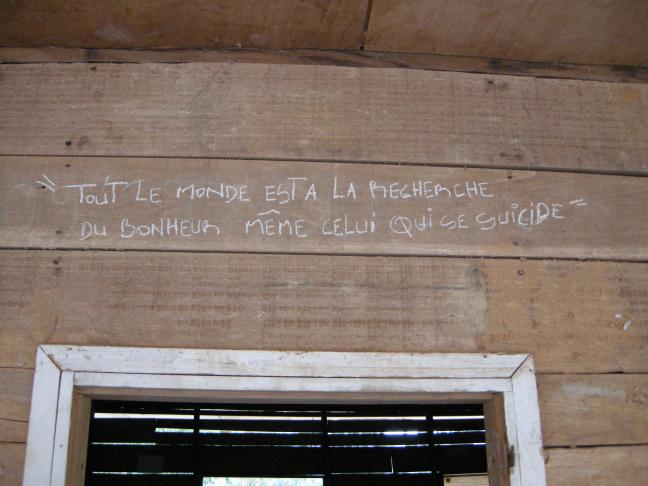 " TOUT LE MONDE EST A LA RECHERCHE
DU BONHEUR MÊME CELUI QUI SE SUICIDE "